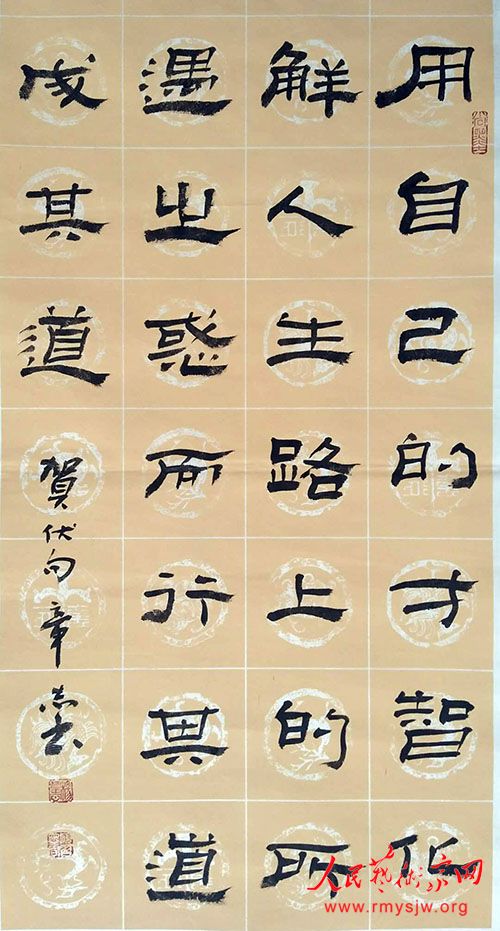 用自己的才智化
解人生路上的所
遇之惑而行其道
成其道
賀伏句章志书
人民藝術家网
www.rmysjw.org